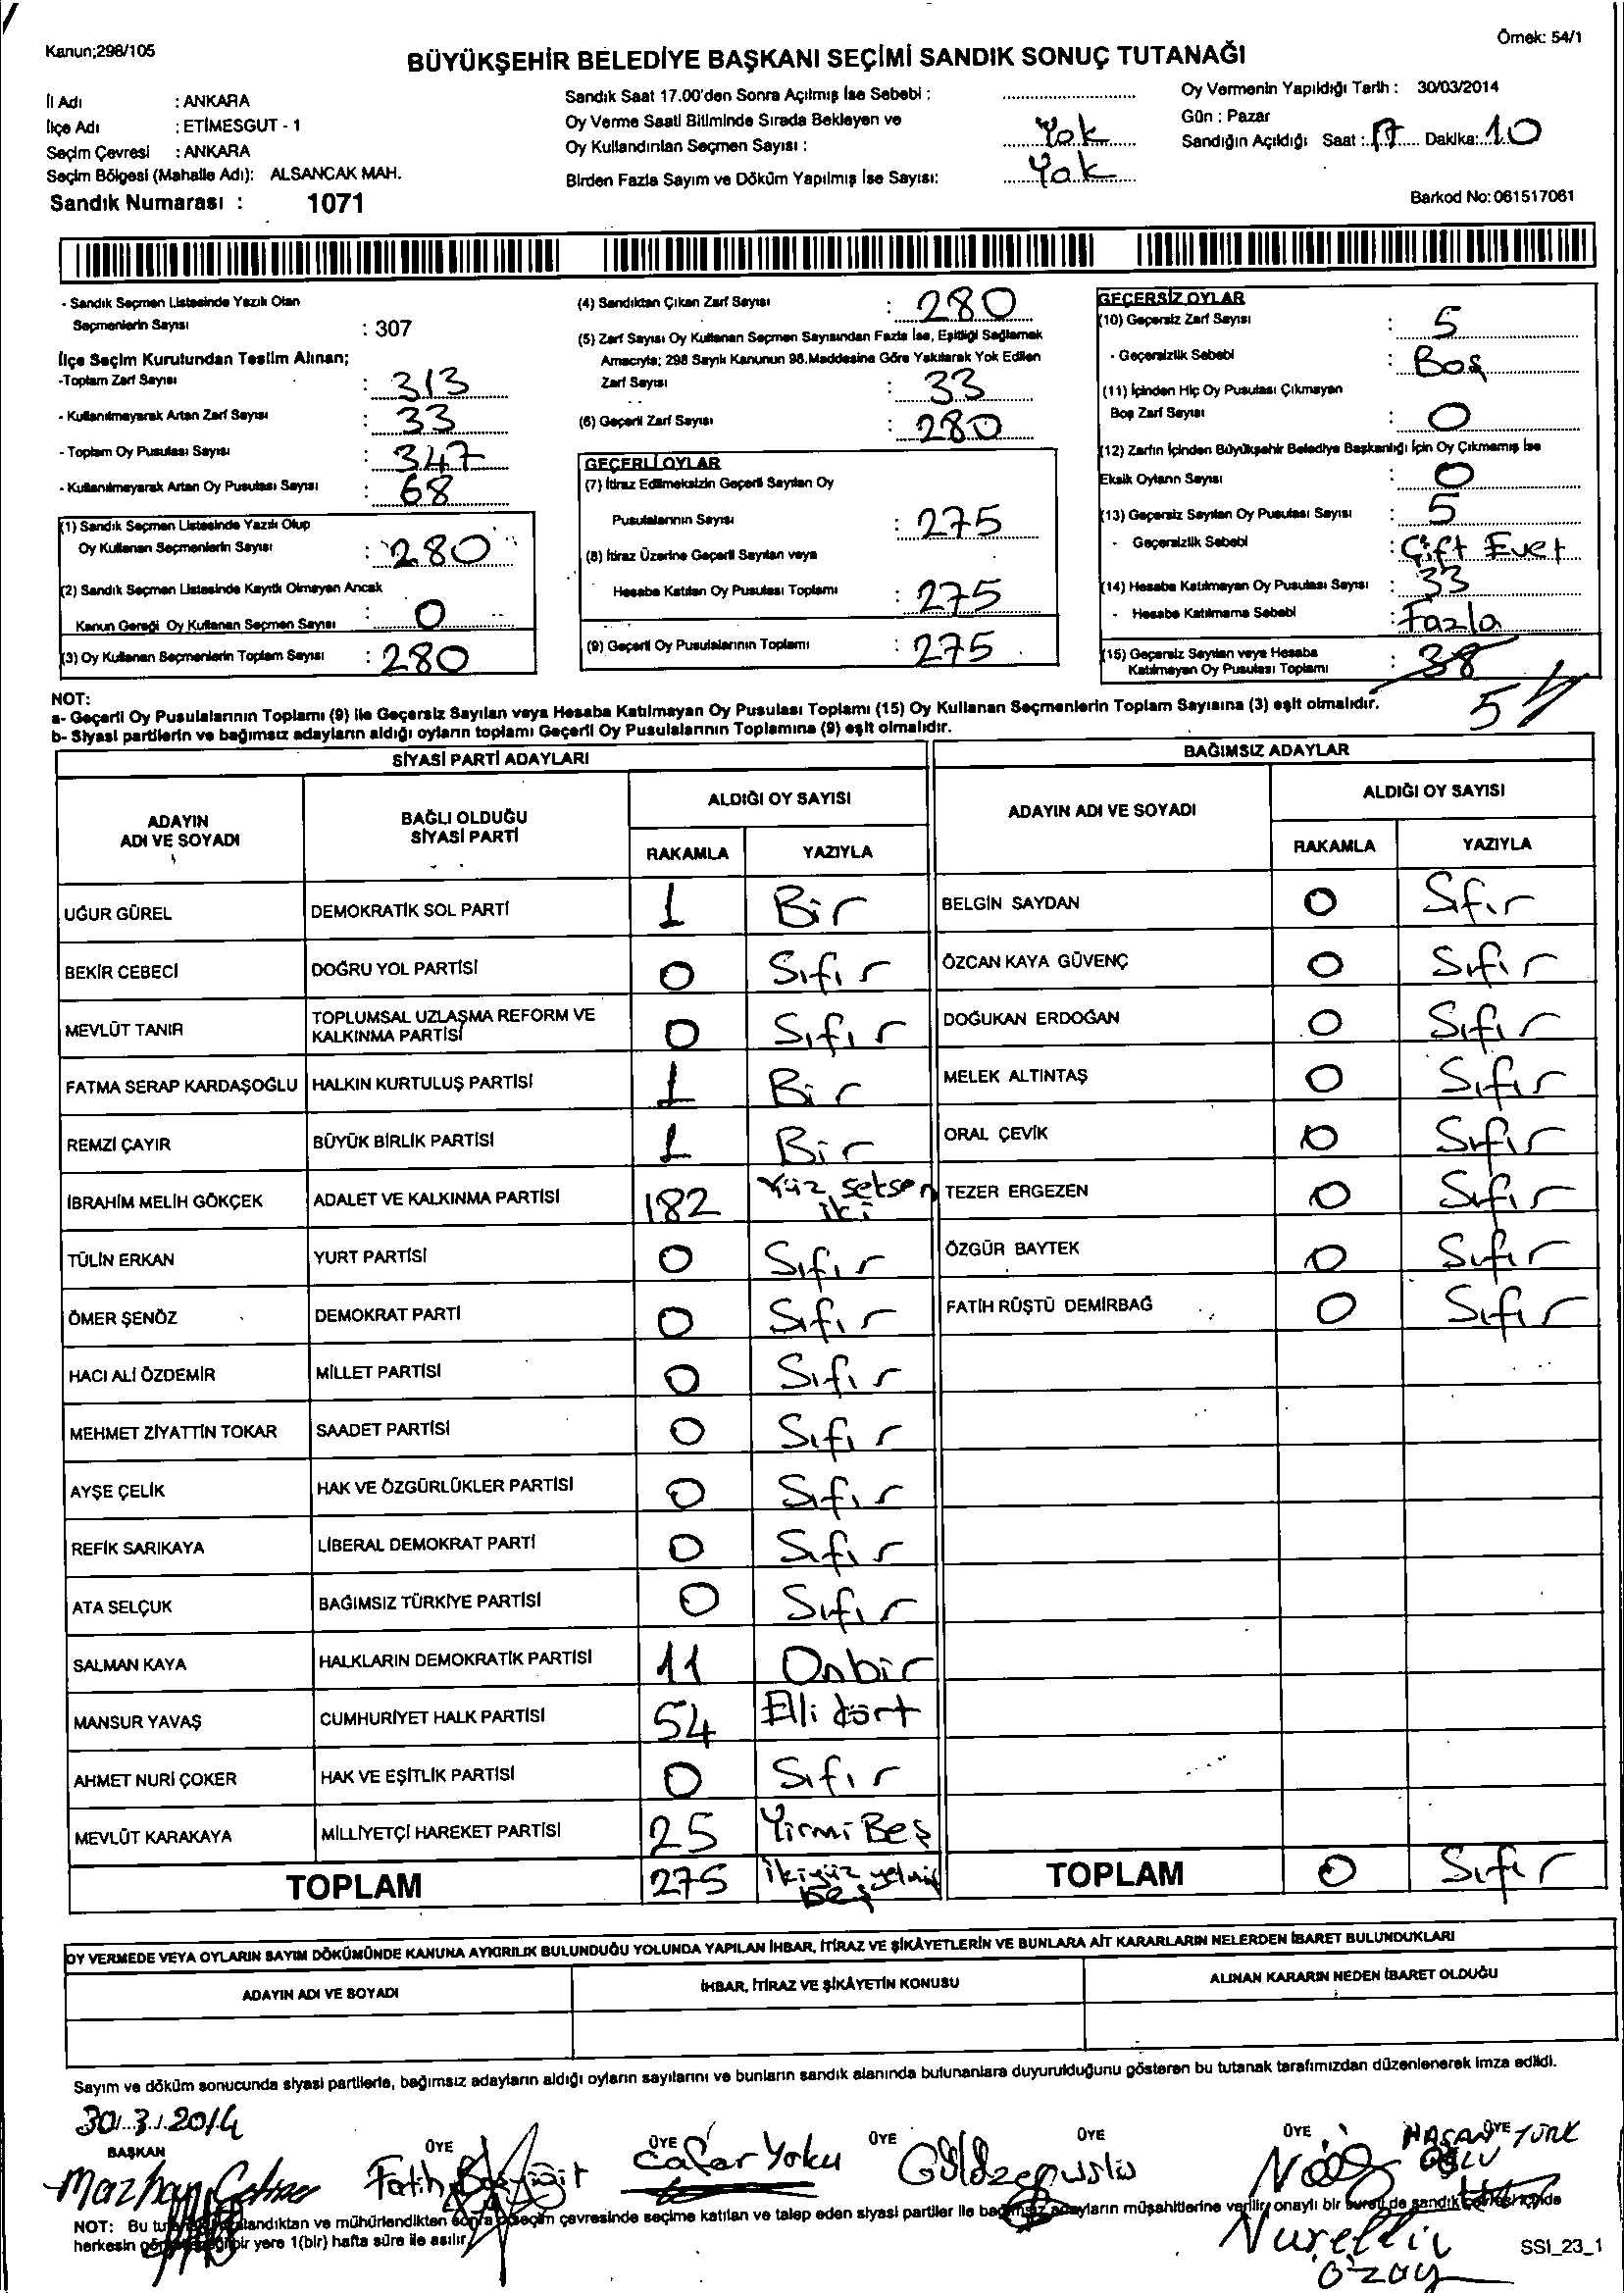 Kanun;298/105
Örnek: 54/1
BÜYÜKŞEHİR BELEDİYE BAŞKANI SEÇİMİ SANDIK SONUÇ TUTANAĞI
İl Adı : ANKARA
İlçe Adı : ETİMESGUT - 1
Seçim Çevresi : ANKARA
Seçim Bölgesi (Mahalle Adı): ALSANCAK MAH.
Sandık Numarası : 1071
Sandık Saat 17.00'den Sonra Açılmış İse Sebebi :
Oy Verme Saati Bitiminde Sırada Bekleyen ve
Oy Kullandırılan Seçmen Sayısı : Yok
Birden Fazla Sayım ve Döküm Yapılmış İse Sayısı: Yok
Oy Vermenin Yapıldığı Tarih : 30/03/2014
Gün : Pazar
Sandığın Açıldığı Saat : 17 Dakika: 10
Barkod No: 061517061
- Sandık Seçmen Listesinde Yazılı Olan
Seçmenlerin Sayısı : 307
İlçe Seçim Kurulundan Teslim Alınan;
-Toplam Zarf Sayısı : 313
- Kullanılmayarak Artan Zarf Sayısı : 33
- Toplam Oy Pusulası Sayısı : 347
- Kullanılmayarak Artan Oy Pusulası Sayısı : 68
(1) Sandık Seçmen Listesinde Yazılı Olup
Oy Kullanan Seçmenlerin Sayısı : 280
(2) Sandık Seçmen Listesinde Kayıtlı Olmayan Ancak
Kanun Gereği Oy Kullanan Seçmen Sayısı : 0
(3) Oy Kullanan Seçmenlerin Toplam Sayısı : 280
(4) Sandıktan Çıkan Zarf Sayısı : 280
(5) Zarf Sayısı Oy Kullanan Seçmen Sayısından Fazla İse, Eşitliği Sağlamak
Amacıyla; 298 Sayılı Kanunun 98.Maddesine Göre Yakılarak Yok Edilen
Zarf Sayısı : 33
(6) Geçerli Zarf Sayısı : 280
GEÇERLİ OYLAR
(7) İtiraz Edilmeksizin Geçerli Sayılan Oy
Pusulalarının Sayısı : 275
(8) İtiraz Üzerine Geçerli Sayılan veya
Hesaba Katılan Oy Pusulası Toplamı : 275
(9) Geçerli Oy Pusulalarının Toplamı : 275
GEÇERSİZ OYLAR
(10) Geçersiz Zarf Sayısı : 5
- Geçersizlik Sebebi : Boş
(11) İçinden Hiç Oy Pusulası Çıkmayan
Boş Zarf Sayısı : 0
(12) Zarfın İçinden Büyükşehir Belediye Başkanlığı İçin Oy Çıkmamış İse
Eksik Oyların Sayısı : 0
(13) Geçersiz Sayılan Oy Pusulası Sayısı : 5
- Geçersizlik Sebebi : Çift Evet
(14) Hesaba Katılmayan Oy Pusulası Sayısı : 33
- Hesaba Katılmama Sebebi : Fazla
(15) Geçersiz Sayılan veya Hesaba
Katılmayan Oy Pusulası Toplamı : 38
NOT:
a- Geçerli Oy Pusulalarının Toplamı (9) ile Geçersiz Sayılan veya Hesaba Katılmayan Oy Pusulası Toplamı (15) Oy Kullanan Seçmenlerin Toplam Sayısına (3) eşit olmalıdır.
b- Siyasi partilerin ve bağımsız adayların aldığı oyların toplamı Geçerli Oy Pusulalarının Toplamına (9) eşit olmalıdır.
SİYASİ PARTİ ADAYLARI
ADAYIN ADI VE SOYADI BAĞLI OLDUĞU SİYASİ PARTİ ALDIĞI OY SAYISI
RAKAMLA YAZIYLA
UĞUR GÜREL DEMOKRATİK SOL PARTİ 1 Bir
BEKİR CEBECİ DOĞRU YOL PARTİSİ 0 Sıfır
MEVLÜT TANIR TOPLUMSAL UZLAŞMA REFORM VE KALKINMA PARTİSİ 0 Sıfır
FATMA SERAP KARDAŞOĞLU HALKIN KURTULUŞ PARTİSİ 1 Bir
REMZİ ÇAYIR BÜYÜK BİRLİK PARTİSİ 1 Bir
İBRAHİM MELİH GÖKÇEK ADALET VE KALKINMA PARTİSİ 182 Yüz seksen iki
TÜLİN ERKAN YURT PARTİSİ 0 Sıfır
ÖMER ŞENÖZ DEMOKRAT PARTİ 0 Sıfır
HACI ALİ ÖZDEMİR MİLLET PARTİSİ 0 Sıfır
MEHMET ZİYATTİN TOKAR SAADET PARTİSİ 0 Sıfır
AYŞE ÇELİK HAK VE ÖZGÜRLÜKLER PARTİSİ 0 Sıfır
REFİK SARIKAYA LİBERAL DEMOKRAT PARTİ 0 Sıfır
ATA SELÇUK BAĞIMSIZ TÜRKİYE PARTİSİ 0 Sıfır
SALMAN KAYA HALKLARIN DEMOKRATİK PARTİSİ 11 Onbir
MANSUR YAVAŞ CUMHURİYET HALK PARTİSİ 54 Elli dört
AHMET NURİ ÇOKER HAK VE EŞİTLİK PARTİSİ 0 Sıfır
MEVLÜT KARAKAYA MİLLİYETÇİ HAREKET PARTİSİ 25 Yirmi Beş
TOPLAM 275 İkiyüz yetmiş beş
BAĞIMSIZ ADAYLAR
ADAYIN ADI VE SOYADI ALDIĞI OY SAYISI
RAKAMLA YAZIYLA
BELGİN SAYDAN 0 Sıfır
ÖZCAN KAYA GÜVENÇ 0 Sıfır
DOĞUKAN ERDOĞAN 0 Sıfır
MELEK ALTINTAŞ 0 Sıfır
ORAL ÇEVİK 0 Sıfır
TEZER ERGEZEN 0 Sıfır
ÖZGÜR BAYTEK 0 Sıfır
FATİH RÜŞTÜ DEMİRBAĞ 0 Sıfır
TOPLAM 0 Sıfır
OY VERMEDE VEYA OYLARIN SAYIM DÖKÜMÜNDE KANUNA AYKIRILIK BULUNDUĞU YOLUNDA YAPILAN İHBAR, İTİRAZ VE ŞİKÂYETLERİN VE BUNLARA AİT KARARLARIN NELERDEN İBARET BULUNDUKLARI
ADAYIN ADI VE SOYADI İHBAR, İTİRAZ VE ŞİKÂYETİN KONUSU ALINAN KARARIN NEDEN İBARET OLDUĞU
Sayım ve döküm sonucunda siyasi partilerle, bağımsız adayların aldığı oyların sayılarını ve bunların sandık alanında bulunanlara duyurulduğunu gösteren bu tutanak tarafımızdan düzenlenerek imza edildi.
30.3.2014
BAŞKAN ÜYE ÜYE ÜYE ÜYE ÜYE ÜYE
Fatih Cafer Yoku HASAN TÜRK
NOT: Bu ve mühürlendikten sonra seçim çevresinde seçime katılan ve talep eden siyasi partiler ile bağımsız adayların müşahitlerine verilir, onaylı bir sureti de sandık
herkesin bir yere 1(bir) hafta süre ile asılır.
Nurettin
Özay
SSI_23_1